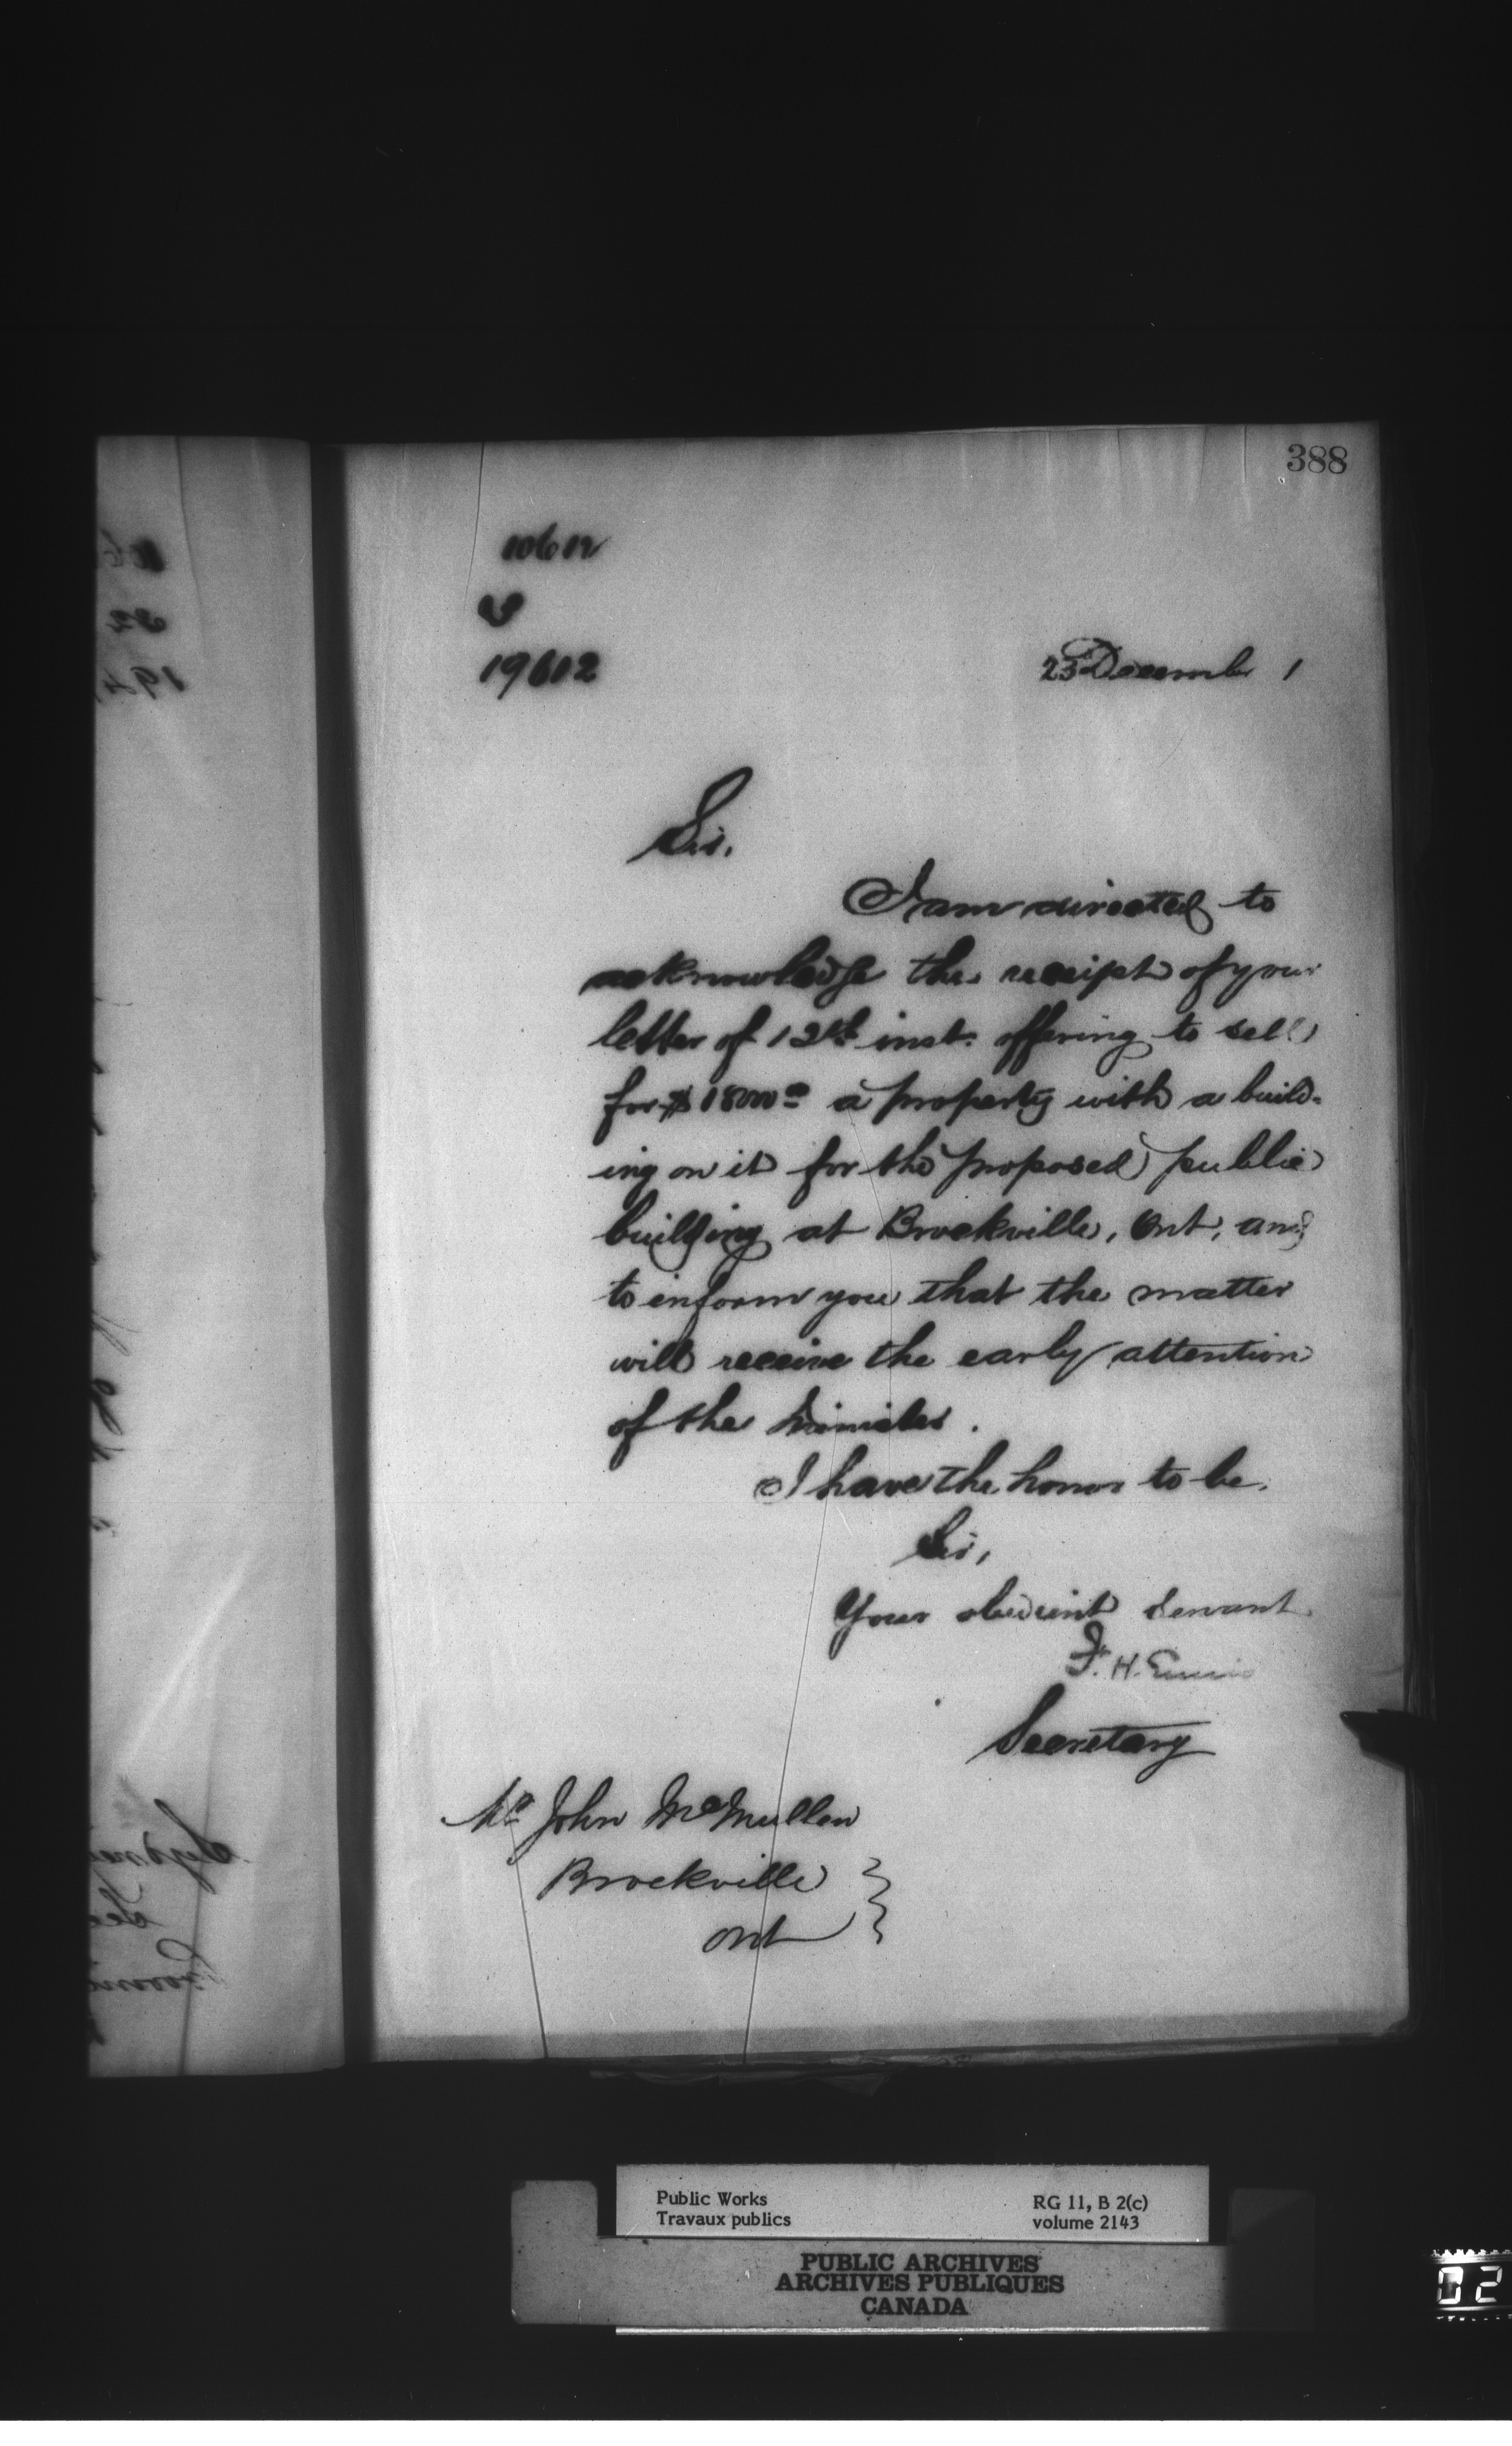 388
10612
19612
23 December 1
Sir,
I am directed to
acknowledge the receipt of your
letter of 12th inst. offering to sell
for $ 18000 a property with a build-
ing on it for the proposed public
building at Brockville, Ont, and
to inform you that the matter
will receive the early attention
of the Minister.
I have the honor to be,
Sir,
Your obedient servant
F. H. Ennis
Secretary
Mr John McMullen
Brockville
Ont
Public Works
Travaux publics
RG 11, B 2(c)
volume 2143
PUBLIC ARCHIVES
ARCHIVES PUBLIQUES
CANADA
02